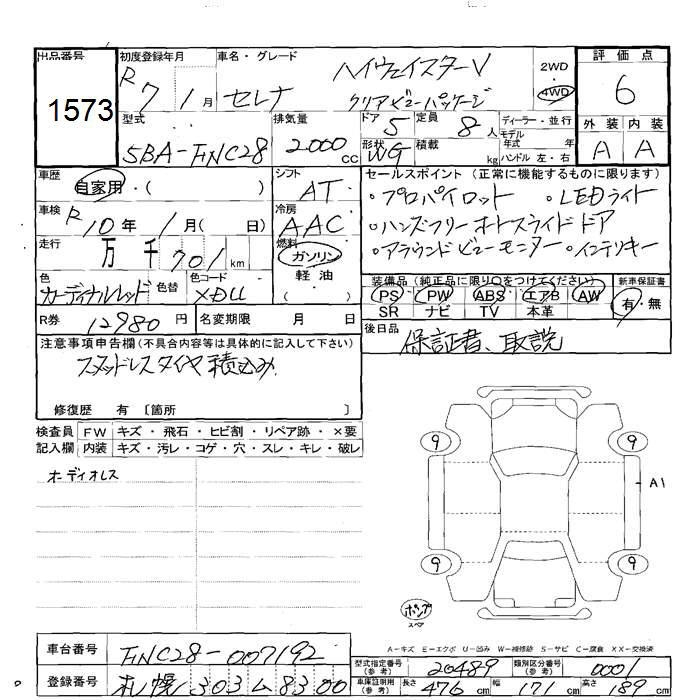 出品番号
1573
初度登録年月
R 7年 1月
車名・グレード
セレナ ハイウェイスターV
クリアビューパッケージ
2WD
4WD
評価点
6
外装 内装
A A
型式
5BA-FNC28
排気量
2000 cc
ドア 5
定員 8人
形状 WG
積載 kg
ディーラー・並行
モデル年式 年
ハンドル 左・右
車歴
自家用・( )
シフト
AT
車検
R 10年 1月( 日)
冷房
AAC
走行
万 千 701 km
燃料
ガソリン
軽油
セールスポイント(正常に機能するものに限ります)
・プロパイロット ・LEDライト
・ハンズフリーオートスライドドア
・アラウンドビューモニター ・インテリキー
色
カーディナルレッド
色替
色コード
XDU
装備品(純正品に限り○をつけてください)
PS PW ABS エアB AW
SR ナビ TV 本革
新車保証書
有・無
R券 12980円
名変期限 月 日
後日品
保証書、取説
注意事項申告欄(不具合内容等は具体的に記入して下さい)
スタッドレスタイヤ積込み
修復歴 有〔箇所 〕
検査員 FW キズ・飛石・ヒビ割・リペア跡・×要
記入欄 内装 キズ・汚レ・コゲ・穴・スレ・キレ・破レ
オーディオレス
9 9
A1
9 9
ポンプ
スペア
A-キズ E-エクボ U-凹み W-補修跡 S-サビ C-腐食 XX-交換済
車台番号 FNC28-007192
登録番号 札幌 303 ム 8300
型式指定番号(参考) 20489
類別区分番号(参考) 0001
車庫証明用(参考) 長さ 476cm 幅 171cm 高さ 189cm